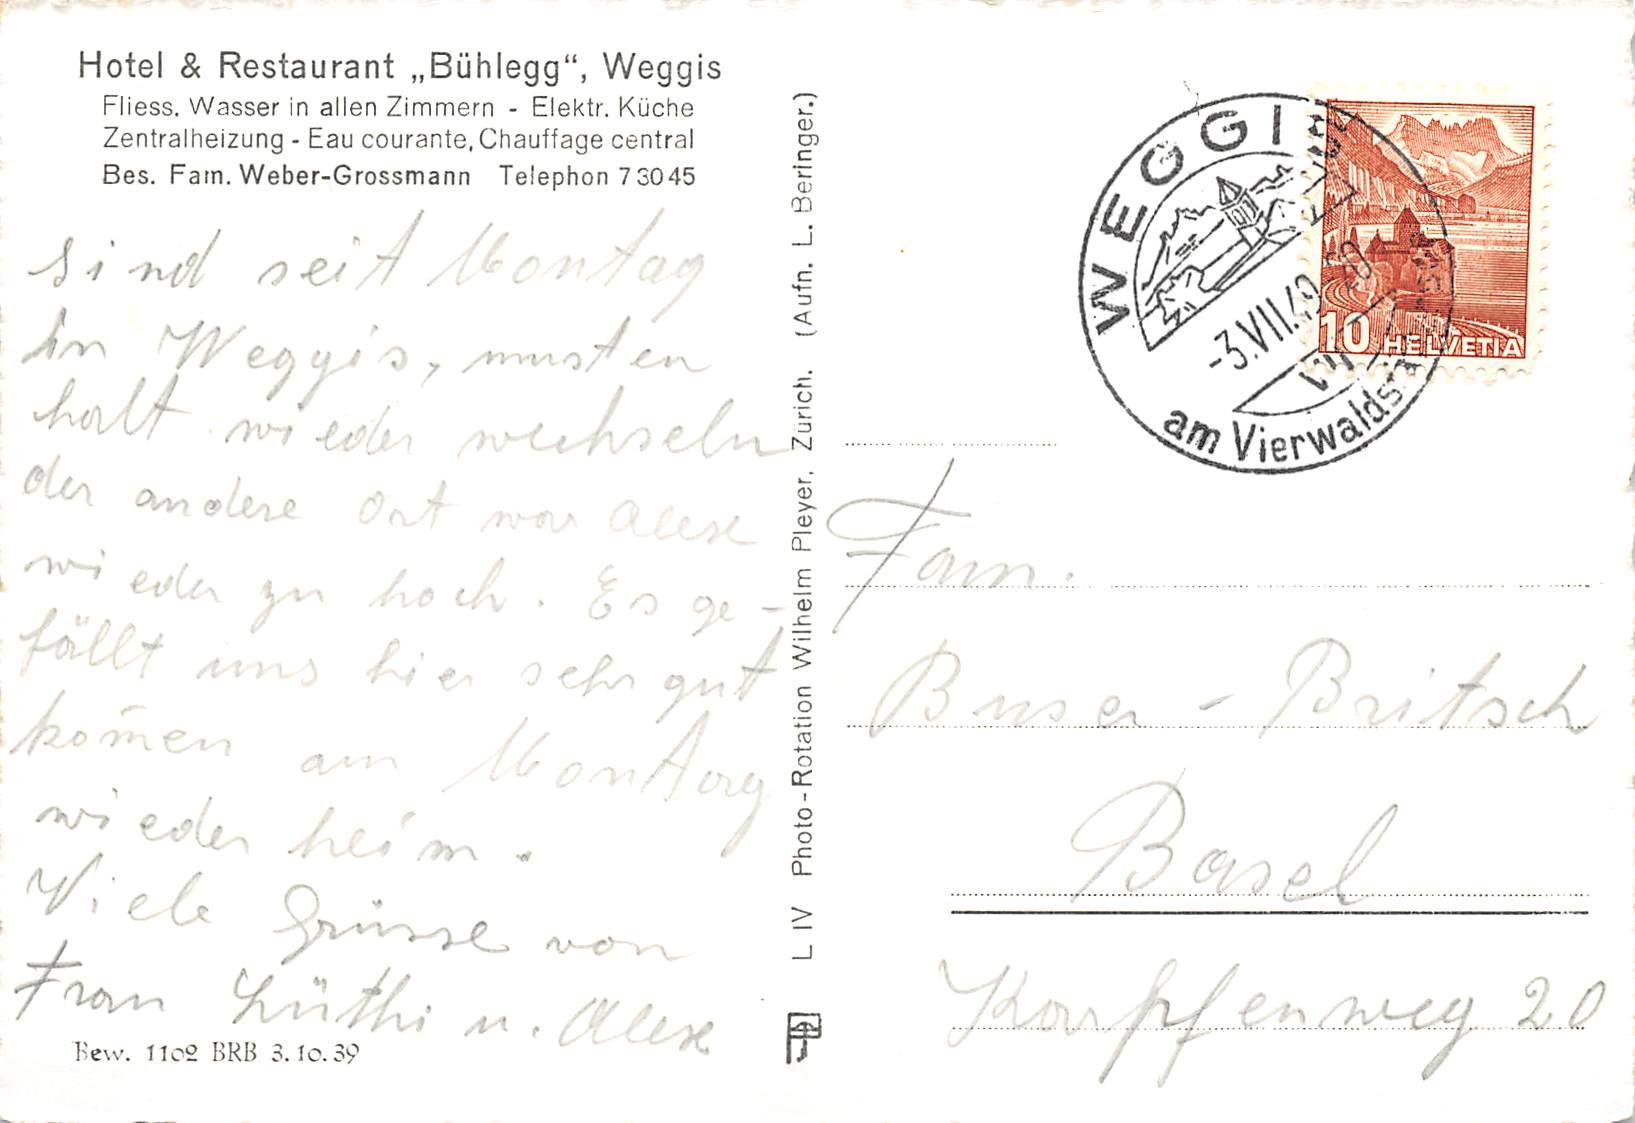 Hotel & Restaurant „Bühlegg“, Weggis
Fliess. Wasser in allen Zimmern - Elektr. Küche
Zentralheizung - Eau courante, Chauffage central
Bes. Fam. Weber-Grossmann Telephon 7 30 45
sind seit Montag
in Weggis, musten
halt wieder wechseln
der andere Ort war Alex
wieder zu hoch. Es ge-
fällt uns hier sehr gut
kom̄en am Montag
wieder heim.
Viele Grüsse von
Frau Lüthi u. Alex
Bew. 1102 BRB 3.10.39
L IV Photo-Rotation Wilhelm Pleyer, Zürich. (Aufn. L. Beringer.)
WEGGIS
-3.VII.49-20
am Vierwaldst
10 HELVETIA
Fam.
Buser - Britsch
Basel
Karpfenweg 20